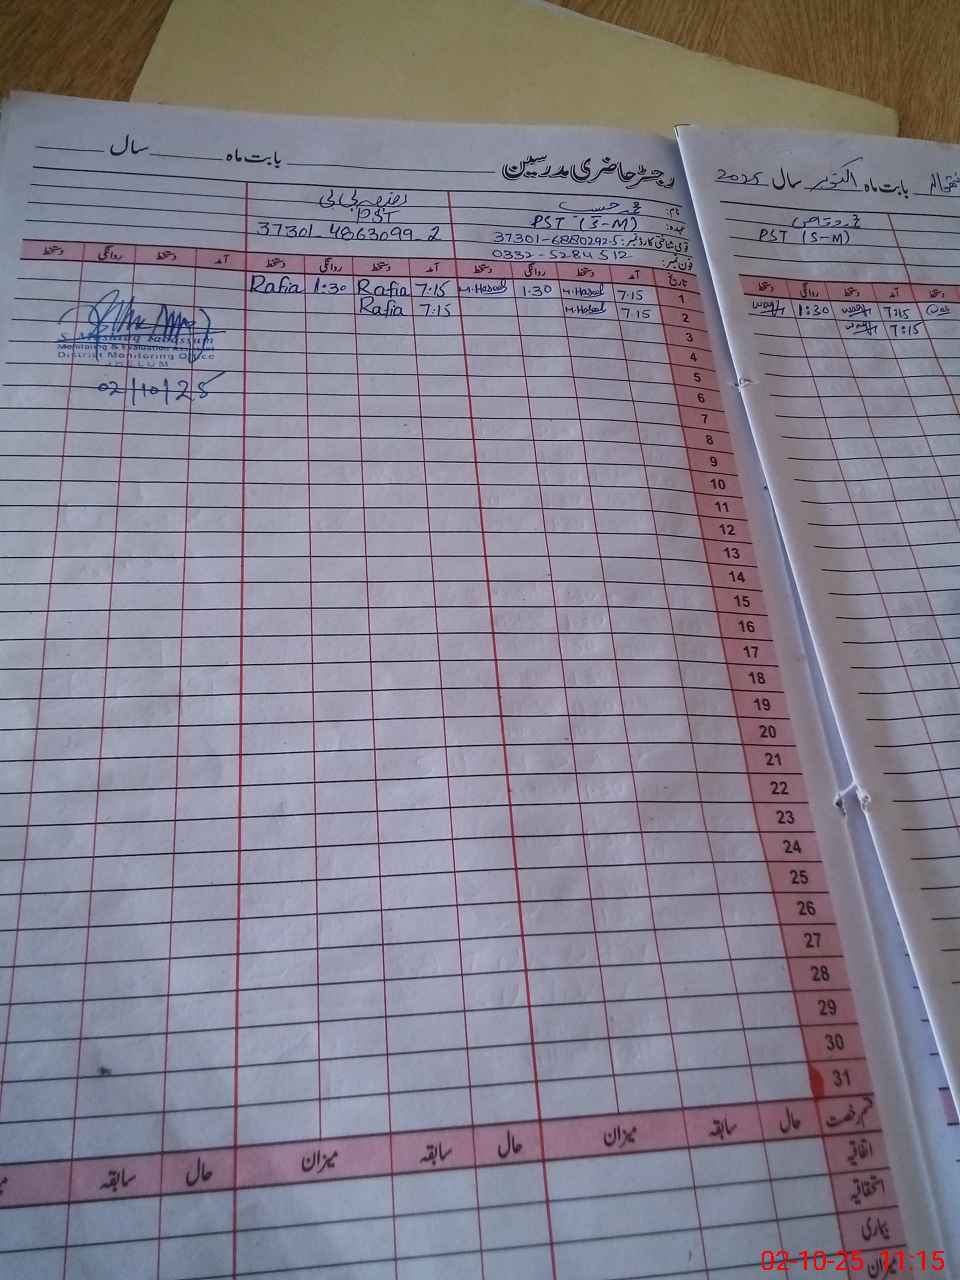 رجسٹر حاضری مدرسین بابت ماہ سال
بابت ماہ اکتوبر سال 2025
نام:
عہدہ: PST (S-M)
PST
قومی شناختی کارڈ نمبر: 37301-6880292-5
37301-4863099-2
فون نمبر: 0332-5284512
PST (S-M)
تاریخ آمد دستخط روانگی دستخط آمد دستخط روانگی دستخط آمد دستخط روانگی دستخط
دستخط آمد دستخط روانگی دستخط
1 7.15 M.Haseeb 1.30 M.Haseeb 7.15 Rafia 1:30 Rafia
7:15 1:30
2 7.15 M.Haseeb 7.15 Rafia
7:15
3
4
5
6
7
8
9
10
11
12
13
14
15
16
17
18
19
20
21
22
23
24
25
26
27
28
29
30
31
Monitoring & Evaluation
District Monitoring Office
JHELUM
02/10/25
قسم رخصت حال سابقہ میزان حال سابقہ میزان حال سابقہ
اتفاقیہ
استحقاقیہ
بیماری
میزان
02-10-25 11:15